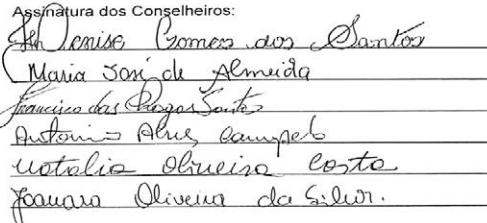 Assinatura dos Conselheiros:
Denise Gomes dos Santos
Maria José de Almeida
Francisco das Chagas Santos
Antonio Alves Campelo
Natalia Oliveira Costa
Joanara Oliveira da Silva.